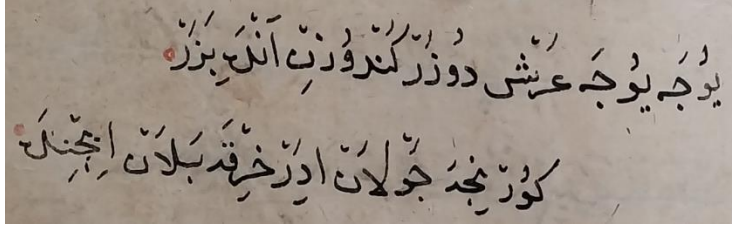 يُوجَه يُوجَه عَرْش دُوزَرْ كَنْدُوزِنْ اَنْكَ بَزَرْ
كُورْ نِجَه جَوْلَانْ اِدَرْ خِرْقَه بَلَانْ اِيچِنْدَ